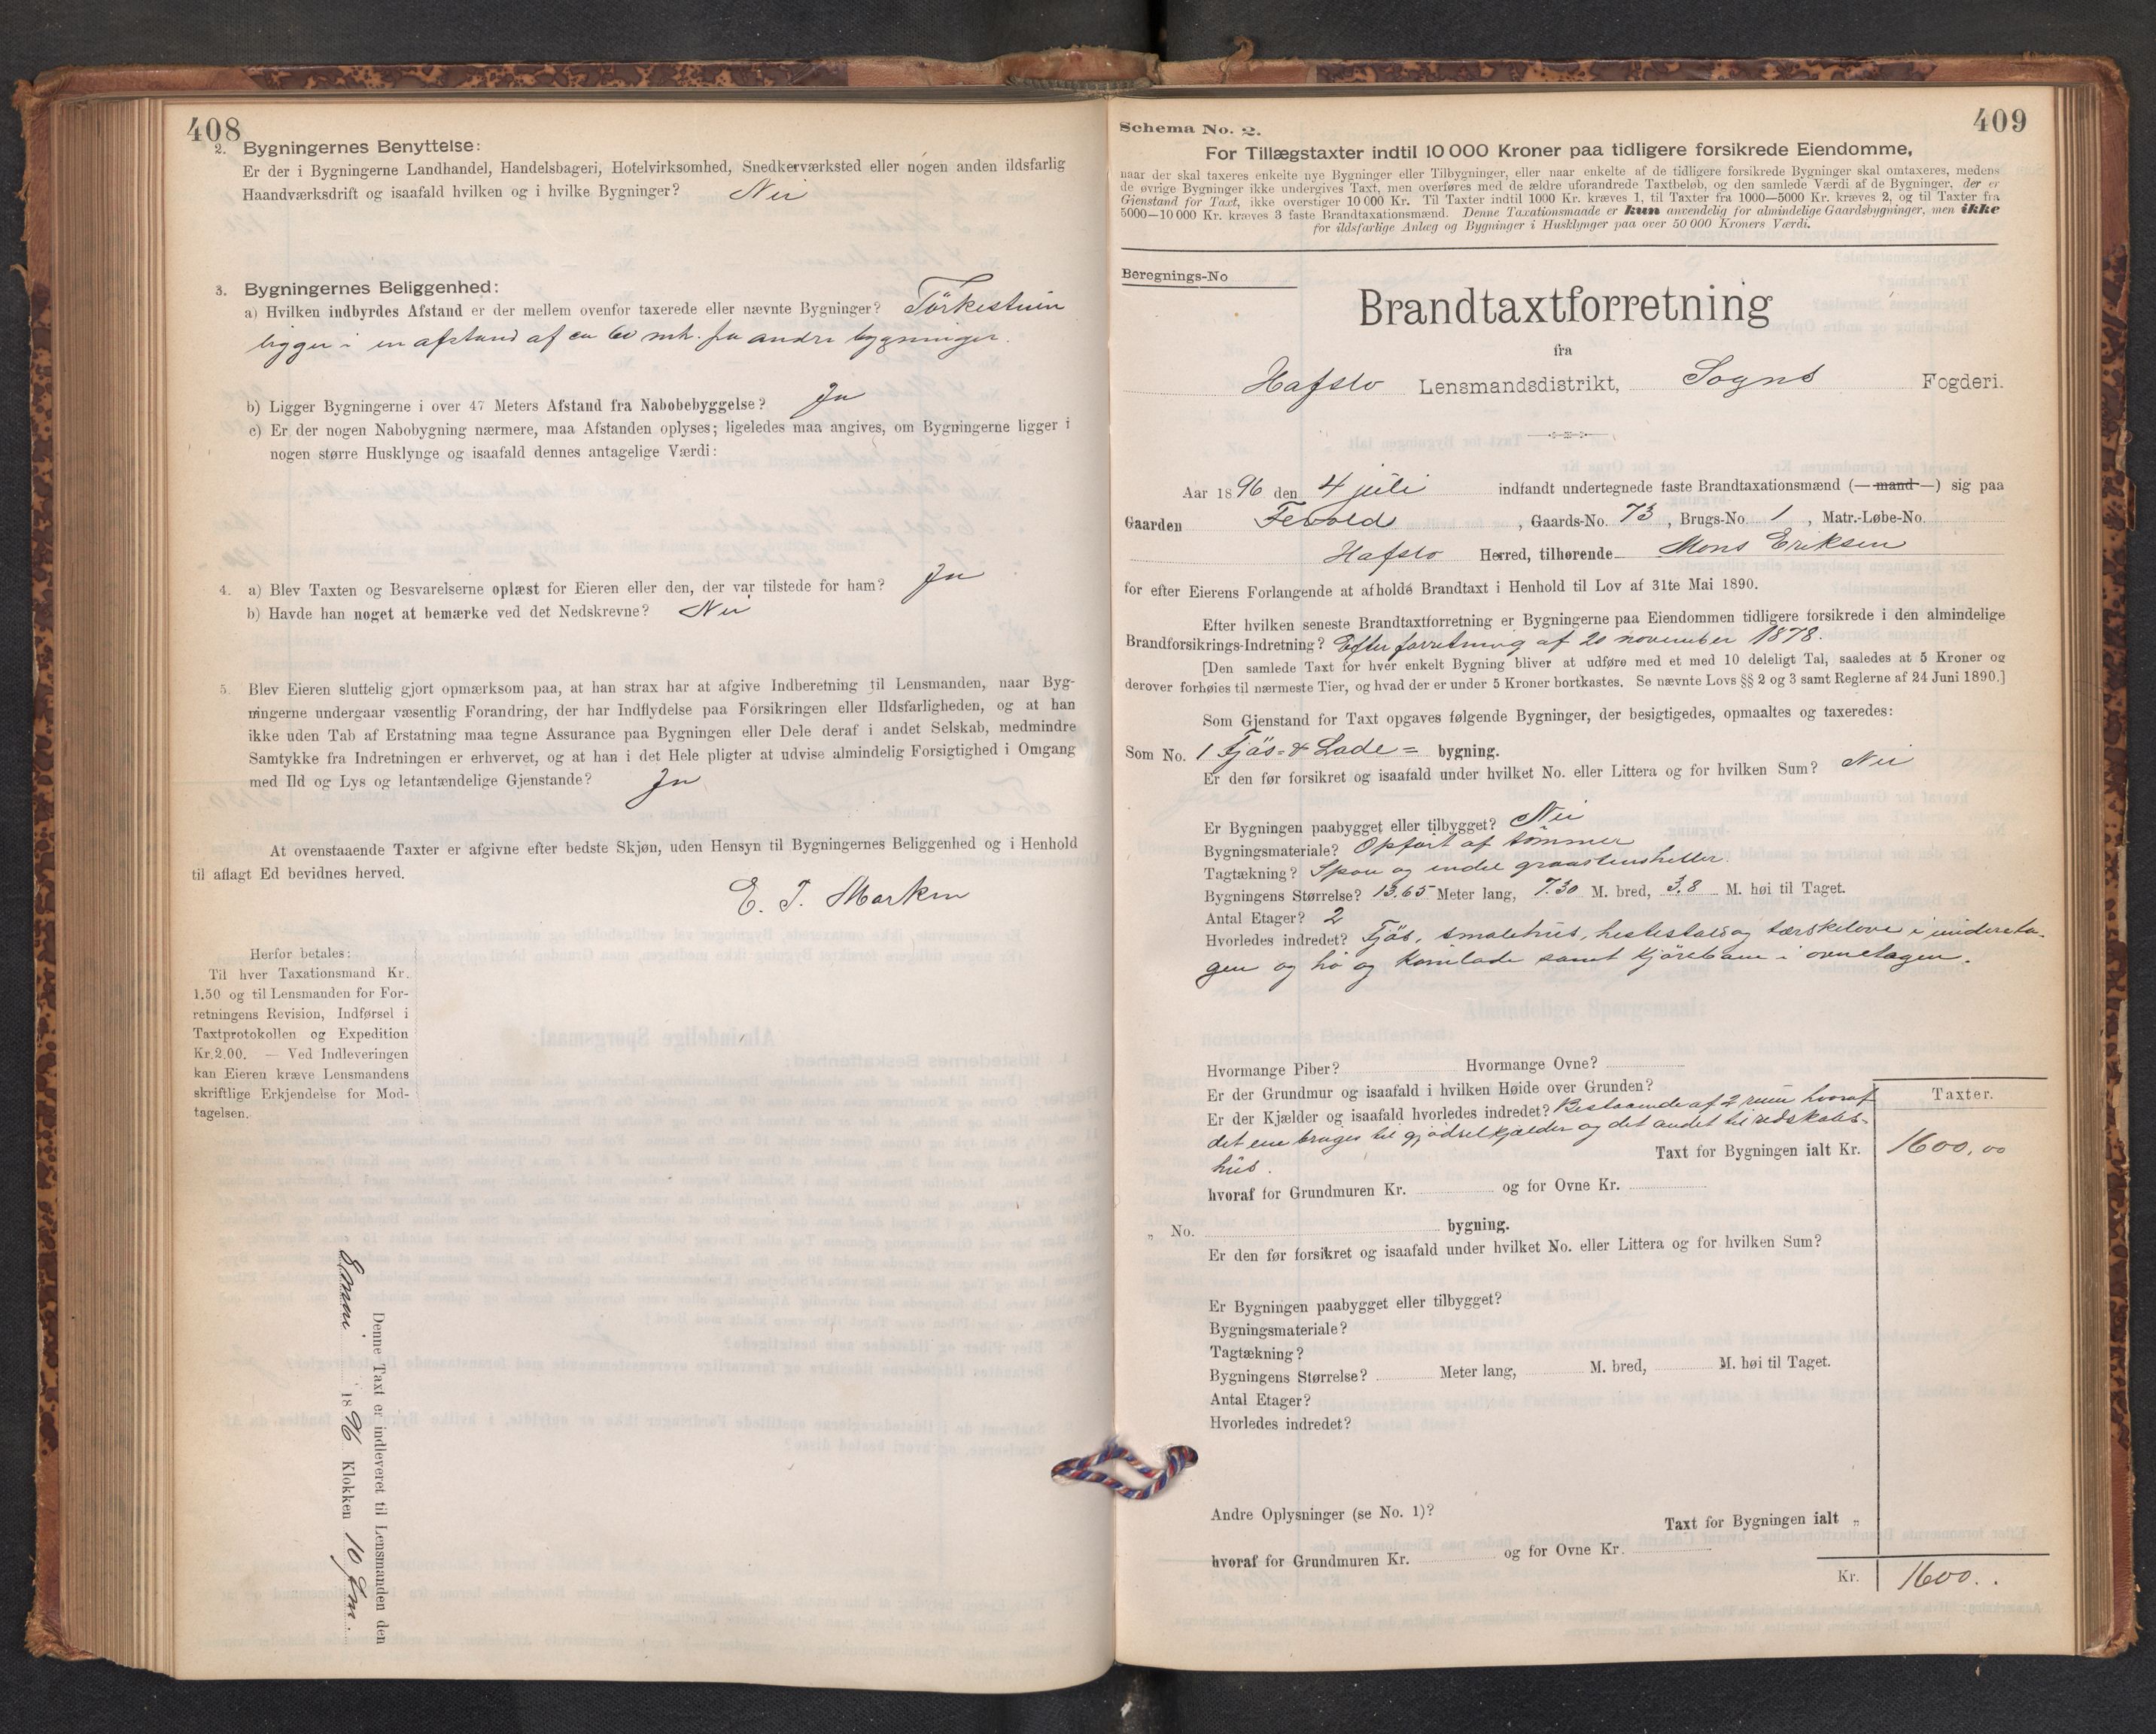 408
2. Bygningernes Benyttelse:
Er der i Bygningerne Landhandel, Handelsbageri, Hotelvirksomhed, Snedkerværksted eller nogen anden ildsfarlig
Haandværksdrift og isaafald hvilken og i hvilke Bygninger? Nei
3. Bygningernes Beliggenhed:
a) Hvilken indbyrdes Afstand er der mellem ovenfor taxerede eller nævnte Bygninger? Törkestuen
ligger i en afstand af ca 60 mtr. fra andre bygninger.
b) Ligger Bygningerne i over 47 Meters Afstand fra Nabobebyggelse? Ja
c) Er der nogen Nabobygning nærmere, maa Afstanden oplyses; ligeledes maa angives, om Bygningerne ligger i
nogen større Husklynge og isaafald dennes antagelige Værdi:
4. a) Blev Taxten og Besvarelserne oplæst for Eieren eller den, der var tilstede for ham? Ja
b) Havde han noget at bemærke ved det Nedskrevne? Nei
5. Blev Eieren sluttelig gjort opmærksom paa, at han strax har at afgive Indberetning til Lensmanden, naar Byg-
ningerne undergaar væsentlig Forandring, der har Indflydelse paa Forsikringen eller Ildsfarligheden, og at han
ikke uden Tab af Erstatning maa tegne Assurance paa Bygningen eller Dele deraf i andet Selskab, medmindre
Samtykke fra Indretningen er erhvervet, og at han i det Hele pligter at udvise almindelig Forsigtighed i Omgang
med Ild og Lys og letantændelige Gjenstande? Ja
At ovenstaaende Taxter er afgivne efter bedste Skjøn, uden Hensyn til Bygningernes Beliggenhed og i Henhold
til aflagt Ed bevidnes herved.
E. T. Marken
Herfor betales:
Til hver Taxationsmand Kr.
1.50 og til Lensmanden for For-
retningens Revision, Indførsel i
Taxtprotokollen og Expedition
Kr. 2.00. — Ved Indleveringen
kan Eieren kræve Lensmandens
skriftlige Erkjendelse for Mod-
tagelsen.
Denne Taxt er indleveret til Lensmanden den
1896 Klokken 10 Fm.
409
Schema No. 2.
For Tillægstaxter indtil 10 000 Kroner paa tidligere forsikrede Eiendomme,
naar der skal taxeres enkelte nye Bygninger eller Tilbygninger, eller naar enkelte af de tidligere forsikrede Bygninger skal omtaxeres, medens
de øvrige Bygninger ikke undergives Taxt, men overføres med de ældre uforandrede Taxtbeløb, og den samlede Værdi af de Bygninger, der er
Gjenstand for Taxt, ikke overstiger 10 000 Kr. Til Taxter indtil 1000 Kr. kræves 1, til Taxter fra 1000—5000 Kr. kræves 2, og til Taxter fra
5000—10 000 Kr. kræves 3 faste Brandtaxationsmænd. Denne Taxationsmaade er kun anvendelig for almindelige Gaardsbygninger, men ikke
for ildsfarlige Anlæg og Bygninger i Husklynger paa over 50 000 Kroners Værdi.
Beregnings-No
Brandtaxtforretning
fra
Hafslo Lensmandsdistrikt, Sogns Fogderi.
Aar 1896 den 4 juli indfandt undertegnede faste Brandtaxationsmænd (— mand —) sig paa
Gaarden Fevold, Gaards-No. 73, Brugs-No. 1, Matr.-Løbe-No.
Hafslo Herred, tilhørende Mons Eriksen
for efter Eierens Forlangende at afholde Brandtaxt i Henhold til Lov af 31te Mai 1890.
Efter hvilken seneste Brandtaxtforretning er Bygningerne paa Eiendommen tidligere forsikrede i den almindelige
Brandforsikrings-Indretning? Efter forretning af 20 november 1878.
[Den samlede Taxt for hver enkelt Bygning bliver at udføre med et med 10 deleligt Tal, saaledes at 5 Kroner og
derover forhøies til nærmeste Tier, og hvad der er under 5 Kroner bortkastes. Se nævnte Lovs §§ 2 og 3 samt Reglerne af 24 Juni 1890.]
Som Gjenstand for Taxt opgaves følgende Bygninger, der besigtigedes, opmaaltes og taxeredes:
Som No. 1 Fjös- & Lade- bygning.
Er den før forsikret og isaafald under hvilket No. eller Littera og for hvilken Sum? Nei
Er Bygningen paabygget eller tilbygget? Nei
Bygningsmateriale? Opfört af tömmer
Tagtækning? Spon og endel graastensheller.
Bygningens Størrelse? 13.65 Meter lang, 7.30 M. bred, 3,8 M. høi til Taget.
Antal Etager? 2
Hvorledes indredet? Fjös, smalehus, hestestald og tærskelove i undereta-
gen og hö og kornlade samt kjörebane i övreetagen.
Hvormange Piber? Hvormange Ovne?
Er der Grundmur og isaafald i hvilken Høide over Grunden?
Er der Kjælder og isaafald hvorledes indredet? Bestaaende af 2 rum hvoraf
det ene bruges til gjödselkjælder og det andet til redskabs-
hus.
Taxter.
Taxt for Bygningen ialt Kr. 1600,00
hvoraf for Grundmuren Kr. og for Ovne Kr.
„ No. bygning.
Er den før forsikret og isaafald under hvilket No. eller Littera og for hvilken Sum?
Er Bygningen paabygget eller tilbygget?
Bygningsmateriale?
Tagtækning?
Bygningens Størrelse? Meter lang, M. bred, M. høi til Taget.
Antal Etager?
Hvorledes indredet?
Andre Oplysninger (se No. 1)?
Taxt for Bygningen ialt „
hvoraf for Grundmuren Kr. og for Ovne Kr.
Kr. 1600..